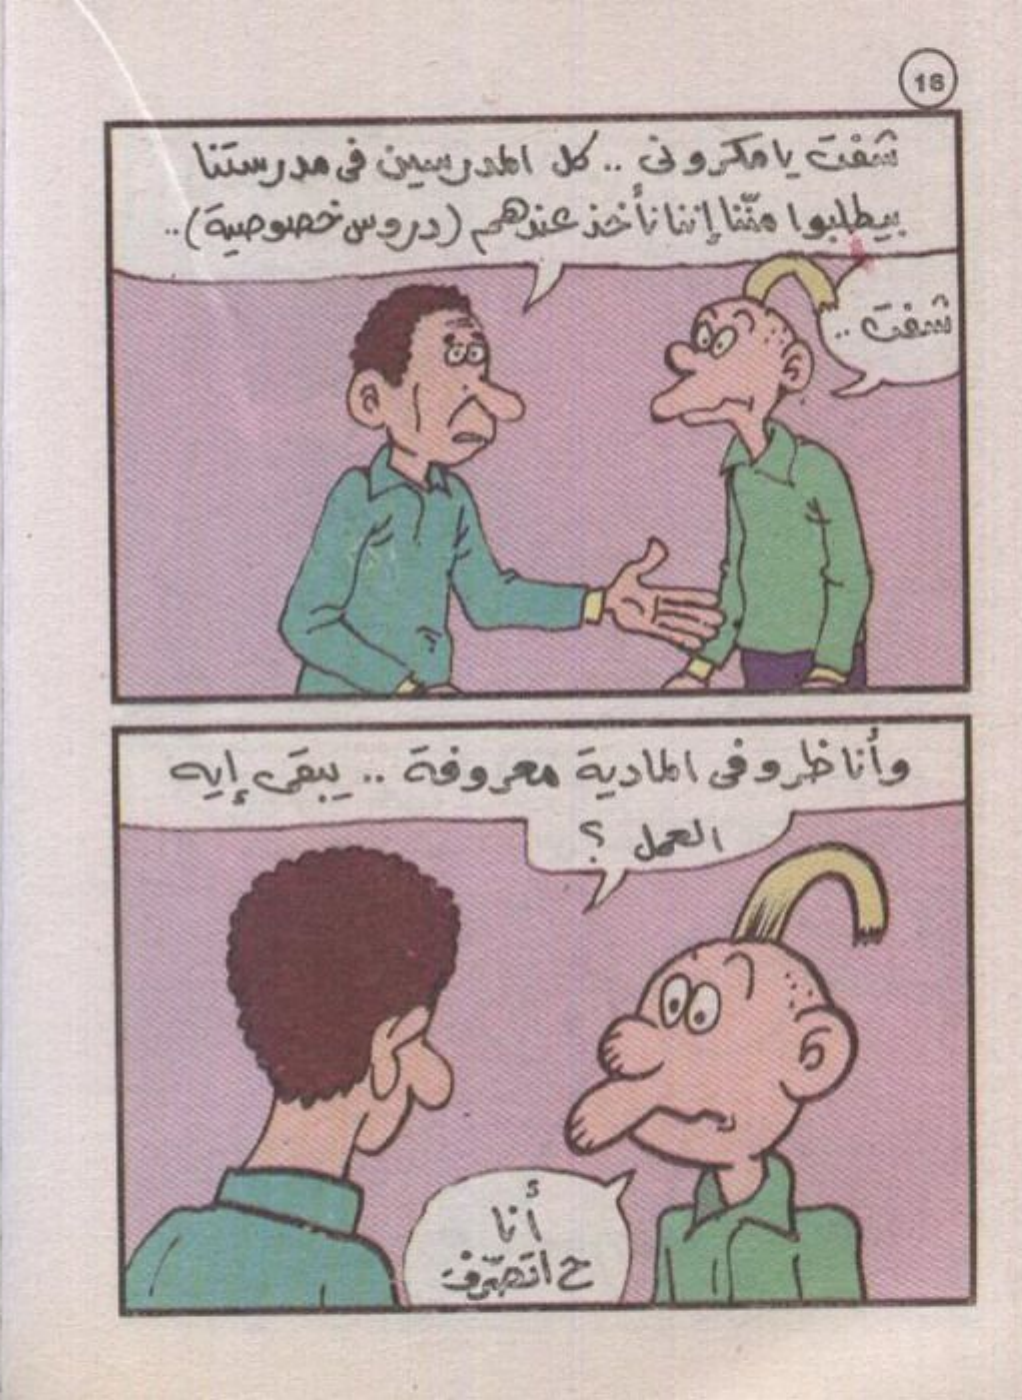 16
شفت يا مكرونى .. كل المدرسين فى مدرستنا
بيطلبوا منّنا إننا نأخذ عندهم (دروس خصوصية) ..
شفت ..
وأنا ظروفى المادية معروفة .. يبقى إيه
العمل ؟
أنا
ح اتصرّف